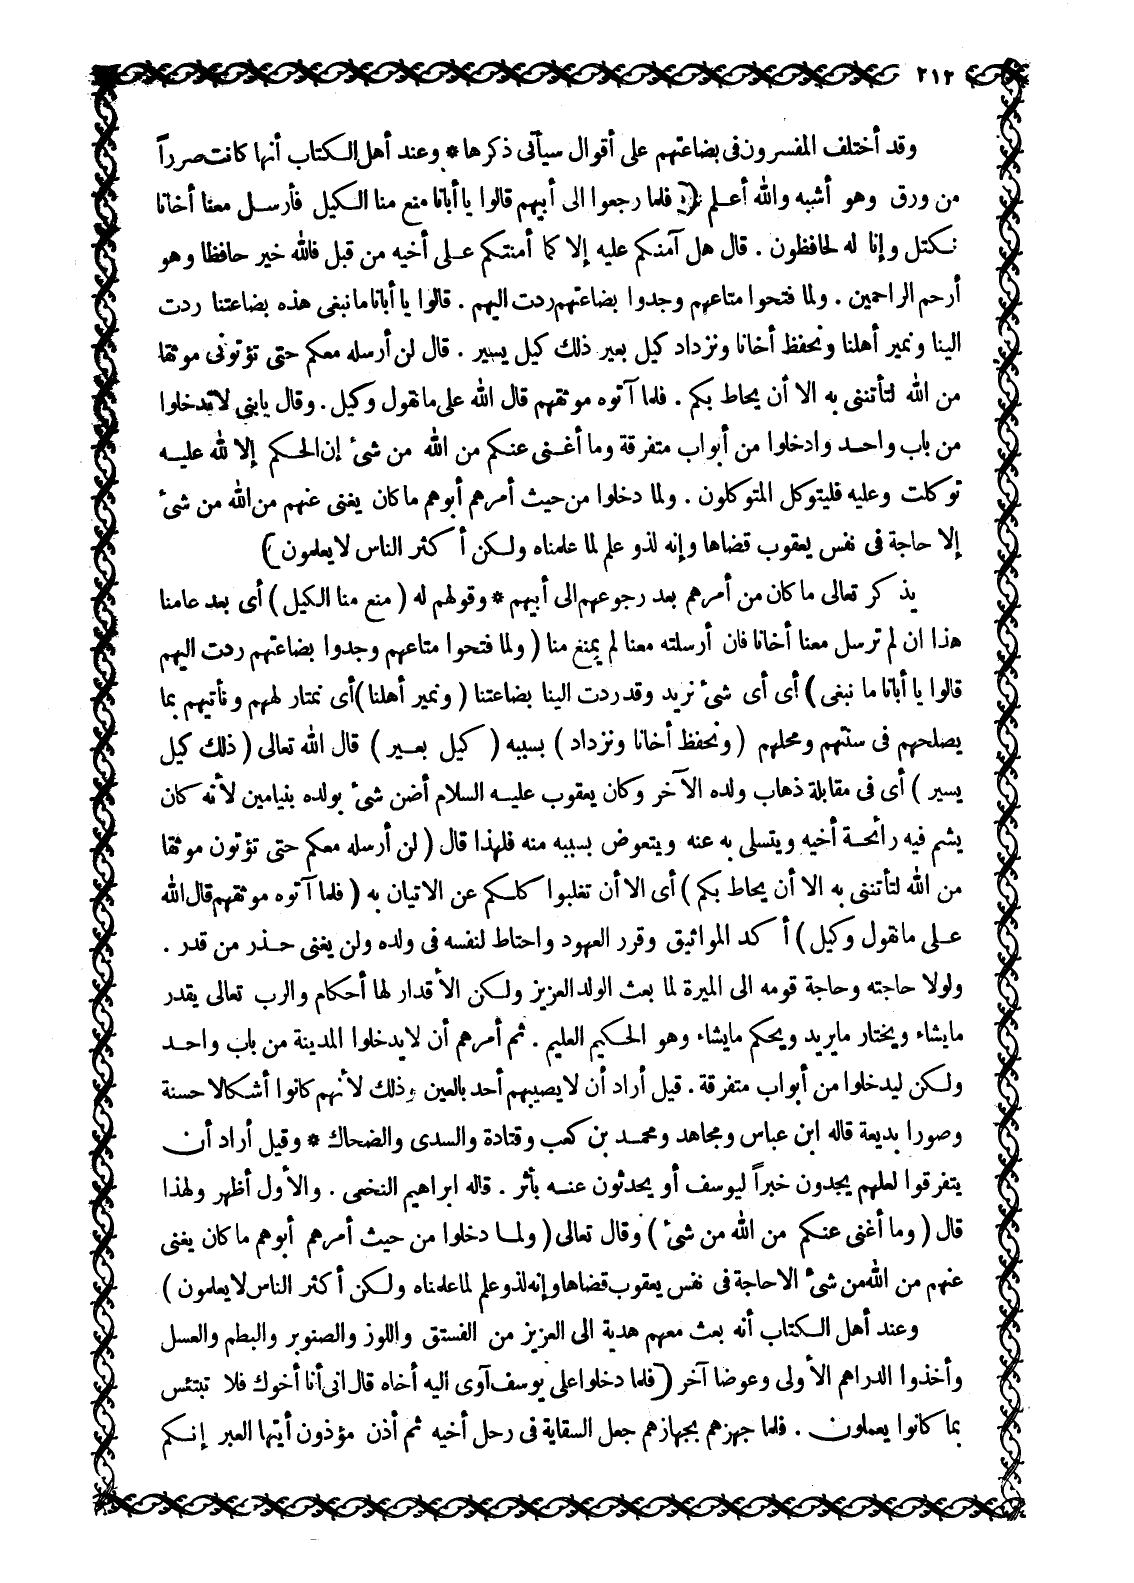 ٢١٢
وقد أختلف المفسرون فى بضاعتهم على أقوال سيأتى ذكرها * وعند أهل الكتاب أنها كانت صرراً
من ورق وهو أشبه والله أعلم ( فلما رجعوا الى أبيهم قالوا يا أبانا منع منا الكيل فأرسل معنا أخانا
نكتل وإنا له لحافظون . قال هل آمنكم عليه إلا كما أمنتكم على أخيه من قبل فالله خير حافظا وهو
أرحم الراحمين . ولما فتحوا متاعهم وجدوا بضاعتهم ردت اليهم . قالوا يا أبانا ما نبغى هذه بضاعتنا ردت
الينا ونمير أهلنا ونحفظ أخانا ونزداد كيل بعير ذلك كيل يسير . قال لن أرسله معكم حتى تؤتونى موثقا
من الله لتأتننى به الا أن يحاط بكم . فلما آتوه موثقهم قال الله على ما نقول وكيل . وقال يابنى لا تدخلوا
من باب واحد وادخلوا من أبواب متفرقة وما أغنى عنكم من الله من شئ إن الحكم إلا لله عليه
توكلت وعليه فليتوكل المتوكلون . ولما دخلوا من حيث أمرهم أبوهم ما كان يغنى عنهم من الله من شئ
إلا حاجة فى نفس يعقوب قضاها وإنه لذو علم لما علمناه ولكن أكثر الناس لا يعلمون )
يذكر تعالى ما كان من أمرهم بعد رجوعهم الى أبيهم * وقولهم له ( منع منا الكيل ) أى بعد عامنا
هذا ان لم ترسل معنا أخانا فان أرسلته معنا لم يمنع منا ( ولما فتحوا متاعهم وجدوا بضاعتهم ردت اليهم
قالوا يا أبانا ما نبغى ) أى أى شئ نريد وقد ردت الينا بضاعتنا ( ونمير أهلنا ) أى نمتار لهم ونأتيهم بما
يصلحهم فى سنتهم ومحلهم ( ونحفظ أخانا ونزداد ) بسببه ( كيل بعير ) قال الله تعالى ( ذلك كيل
يسير ) أى فى مقابلة ذهاب ولده الآخر وكان يعقوب عليه السلام أضن شئ بولده بنيامين لأنه كان
يشم فيه رائحة أخيه ويتسلى به عنه ويتعوض بسببه منه فلهذا قال ( لن أرسله معكم حتى تؤتون موثقا
من الله لتأتننى به الا أن يحاط بكم ) أى الا أن تغلبوا كلكم عن الاتيان به ( فلما آتوه موثقهم قال الله
على ما نقول وكيل ) أكد المواثيق وقرر العهود واحتاط لنفسه فى ولده ولن يغنى حذر من قدر .
ولولا حاجته وحاجة قومه الى الميرة لما بعث الولد العزيز ولكن الأقدار لها أحكام والرب تعالى يقدر
ما يشاء ويختار ما يريد ويحكم ما يشاء وهو الحكيم العليم . ثم أمرهم أن لا يدخلوا المدينة من باب واحد
ولكن ليدخلوا من أبواب متفرقة . قيل أراد أن لا يصيبهم أحد بالعين وذلك لأنهم كانوا أشكالا حسنة
وصورا بديعة قاله ابن عباس ومجاهد ومحمد بن كعب وقتادة والسدى والضحاك * وقيل أراد أن
يتفرقوا لعلهم يجدون خبراً ليوسف أو يحدثون عنه بأثر . قاله ابراهيم النخمى . والأول أظهر ولهذا
قال ( وما أغنى عنكم من الله من شئ ) وقال تعالى ( ولما دخلوا من حيث أمرهم أبوهم ما كان يغنى
عنهم من الله من شئ الا حاجة فى نفس يعقوب قضاها وإنه لذو علم لما علمناه ولكن أكثر الناس لا يعلمون )
وعند أهل الكتاب أنه بعث معهم هدية الى العزيز من الفستق واللوز والصنوبر والبطم والعسل
وأخذوا الدراهم الأولى وعوضا آخر ( فلما دخلوا على يوسف آوى اليه أخاه قال انى أنا أخوك فلا تبتئس
بما كانوا يعملون . فلما جهزهم بجهازهم جعل السقاية فى رحل أخيه ثم أذن مؤذون أيتها العير إنكم